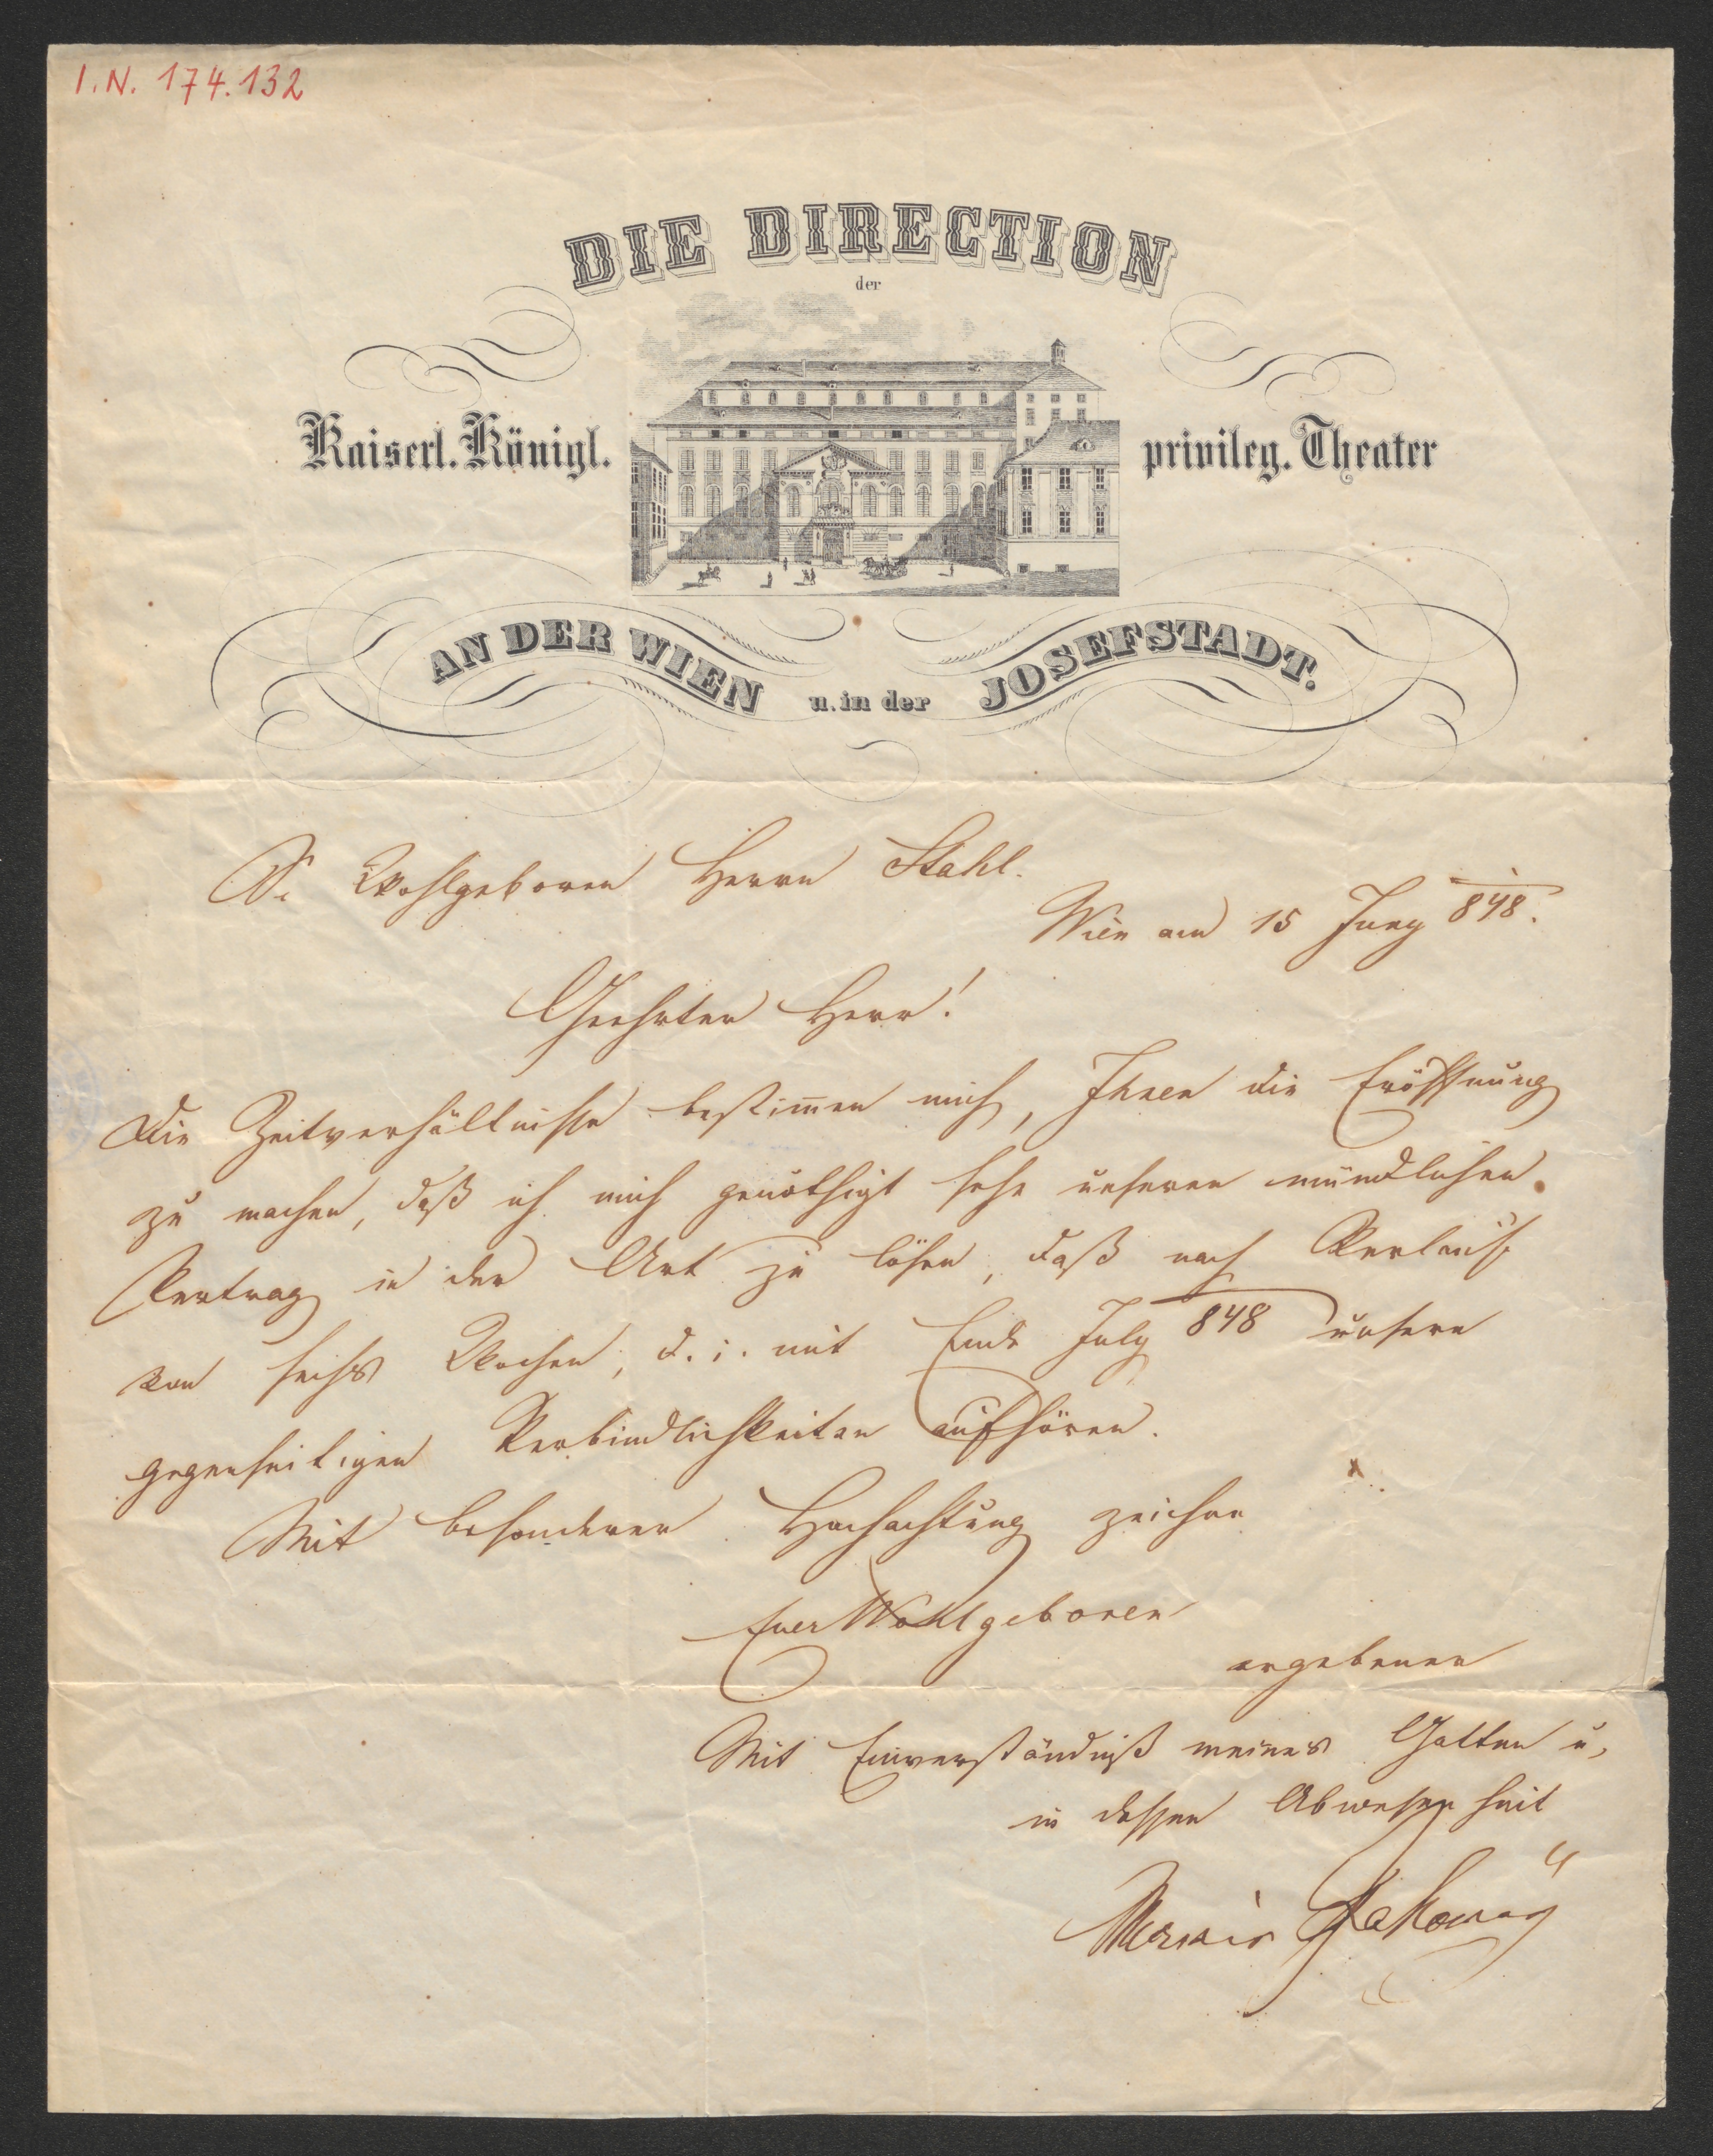 I.N. 174.132
DIE DIRECTION
der
Kaiserl. Königl. privileg. Theater
AN DER WIEN u. in der JOSEFSTADT.
Sr Wohlgeboren Herrn Stahl.
Wien am 15 Juny 848.
Geehrter Herr!
Die Zeitverhältnisse bestimmen mich, Ihnen die Eröffnung
zu machen, daß ich mich genöthigt sehe unseren mündlichen
Vertrag in der Art zu lösen, daß nach Verlauf
von sechs Wochen, d. i. mit Ende July 848 unsere
gegenseitigen Verbindlichkeiten aufhören.
Mit besonderer Hochachtung zeichne
Euer Wohlgeboren
ergebener
Mit Einverständniß meines Gatten u.
in dessen Abwesenheit
Pokorny